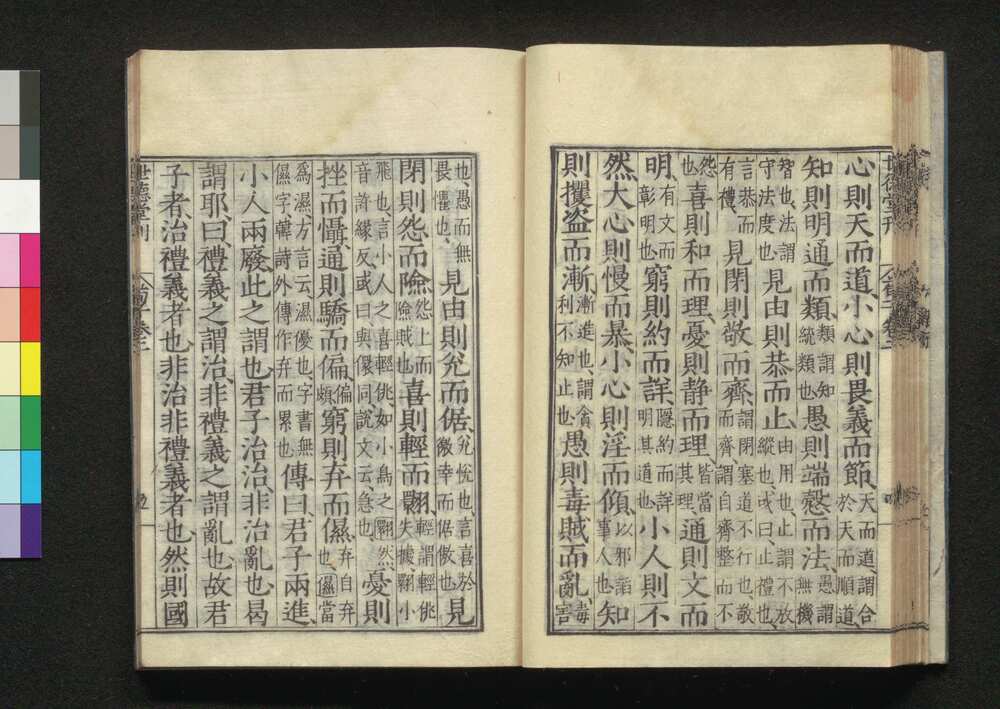 心則天而道、小心則畏義而節、天而道、謂合於天而順道、
知則明通而類、類謂知統類也、愚則端慤而法、愚謂無機
智也、法謂守法度也、見由則恭而止、由用也、止謂不放縱也、或曰、止禮也、
言恭而有禮、見閉則敬而齊、謂閉塞道不行也、敬而齊謂自齊整而不
怨也、喜則和而理、憂則静而理、皆當其理、通則文而
明、有文而彰明也、窮則約而詳、隱約而詳明其道也、小人則不
然、大心則慢而暴、小心則淫而傾、以邪諂事人也、知
則攫盗而漸、漸進也、謂貪利不知止也、愚則毒賊而亂、毒害
世德堂刊
也、愚而無畏懼也、見由則兊而倨、兊悅也、言喜於徼幸而倨傲也、見
閉則怨而險、怨上而險賊也、喜則輕而翾、輕謂輕佻失據、翾小
飛也、言小人之喜輕佻如小鳥之翾然、音許縁反、或曰與儇同、説文云、急也、憂則
挫而懾、通則驕而偏、偏頗、窮則弃而儑、弃自弃也、儑當
爲濕、方言云、濕優也、字書無儑字、韓詩外傳作弃而累也、傳曰、君子兩進、
小人兩廢、此之謂也、君子治治、非治亂也、曷
謂耶、曰、禮義之謂治、非禮義之謂亂也、故君
子者、治禮義者也、非治非禮義者也、然則國
世德堂刊 荀子卷二